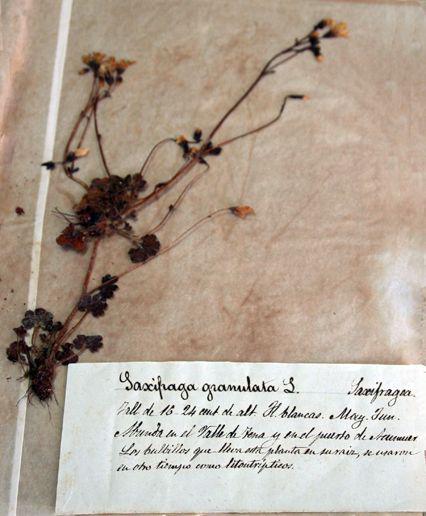 Saxifraga granulata L. Saxifragea
Tall de 16-24 cent de alt. Fl. blancas. May. Jun.
Abunda en el Valle de Tena y en el puerto de
Los bulbillos que lleva esta planta en su raiz, se usaron
en otro tiempo como litontrípticos.